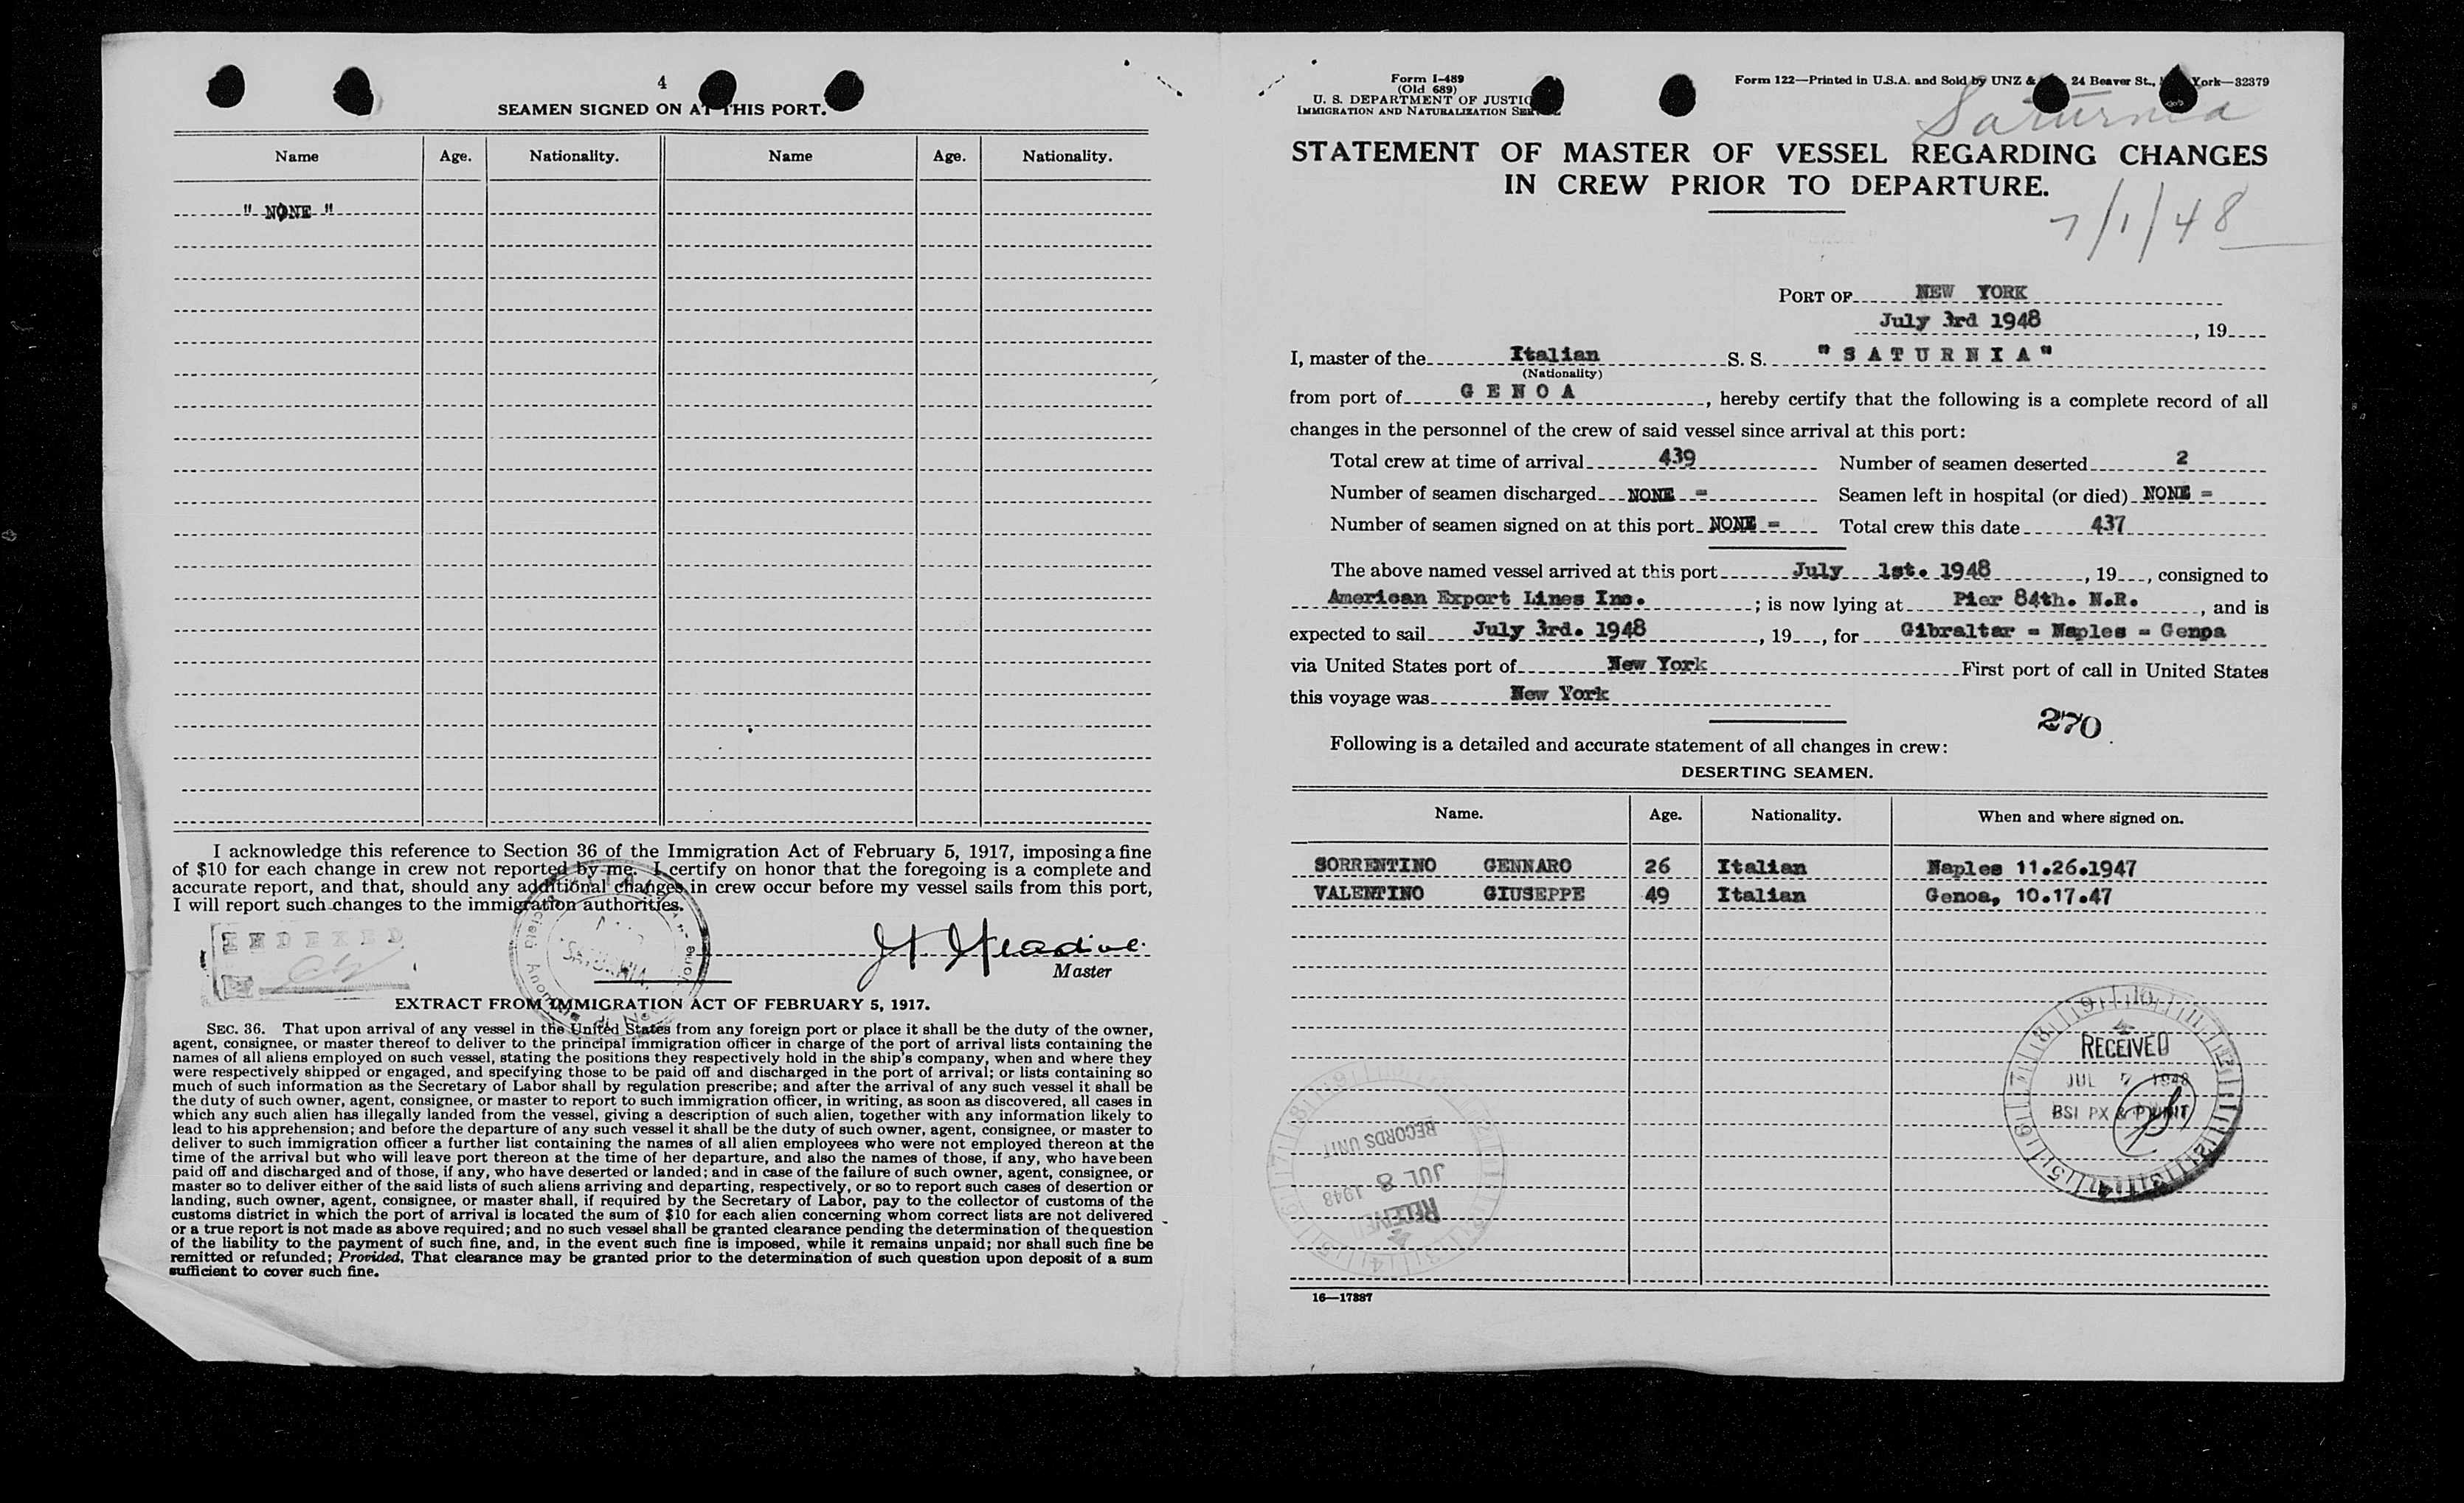 4
SEAMEN SIGNED ON AT THIS PORT.
Name Age. Nationality. Name Age. Nationality.
" NONE "
I acknowledge this reference to Section 36 of the Immigration Act of February 5, 1917, imposing a fine
of $10 for each change in crew not reported by me. I certify on honor that the foregoing is a complete and
accurate report, and that, should any additional changes in crew occur before my vessel sails from this port,
I will report such changes to the immigration authorities.
INDEXED
SATURNIA
Master
EXTRACT FROM IMMIGRATION ACT OF FEBRUARY 5, 1917.
SEC. 36. That upon arrival of any vessel in the United States from any foreign port or place it shall be the duty of the owner,
agent, consignee, or master thereof to deliver to the principal immigration officer in charge of the port of arrival lists containing the
names of all aliens employed on such vessel, stating the positions they respectively hold in the ship's company, when and where they
were respectively shipped or engaged, and specifying those to be paid off and discharged in the port of arrival; or lists containing so
much of such information as the Secretary of Labor shall by regulation prescribe; and after the arrival of any such vessel it shall be
the duty of such owner, agent, consignee, or master to report to such immigration officer, in writing, as soon as discovered, all cases in
which any such alien has illegally landed from the vessel, giving a description of such alien, together with any information likely to
lead to his apprehension; and before the departure of any such vessel it shall be the duty of such owner, agent, consignee, or master to
deliver to such immigration officer a further list containing the names of all alien employees who were not employed thereon at the
time of the arrival but who will leave port thereon at the time of her departure, and also the names of those, if any, who have been
paid off and discharged and of those, if any, who have deserted or landed; and in case of the failure of such owner, agent, consignee, or
master so to deliver either of the said lists of such aliens arriving and departing, respectively, or so to report such cases of desertion or
landing, such owner, agent, consignee, or master shall, if required by the Secretary of Labor, pay to the collector of customs of the
customs district in which the port of arrival is located the sum of $10 for each alien concerning whom correct lists are not delivered
or a true report is not made as above required; and no such vessel shall be granted clearance pending the determination of the question
of the liability to the payment of such fine, and, in the event such fine is imposed, while it remains unpaid; nor shall such fine be
remitted or refunded; Provided, That clearance may be granted prior to the determination of such question upon deposit of a sum
sufficient to cover such fine.
Form I-489
(Old 689)
U. S. DEPARTMENT OF JUSTICE
IMMIGRATION AND NATURALIZATION SERVICE
Form 122—Printed in U.S.A. and Sold by UNZ & 24 Beaver St., York—32379
Saturnia
STATEMENT OF MASTER OF VESSEL REGARDING CHANGES
IN CREW PRIOR TO DEPARTURE.
7/1/48
PORT OF NEW YORK
July 3rd 1948, 19
I, master of the Italian S. S. "SATURNIA"
(Nationality)
from port of GENOA, hereby certify that the following is a complete record of all
changes in the personnel of the crew of said vessel since arrival at this port:
Total crew at time of arrival 439 Number of seamen deserted 2
Number of seamen discharged NONE = Seamen left in hospital (or died) NONE =
Number of seamen signed on at this port NONE = Total crew this date 437
The above named vessel arrived at this port July 1st. 1948, 19, consigned to
American Export Lines Inc. ; is now lying at Pier 84th. N.R., and is
expected to sail July 3rd. 1948, 19, for Gibraltar = Naples = Genoa
via United States port of New York First port of call in United States
this voyage was New York
270
Following is a detailed and accurate statement of all changes in crew:
DESERTING SEAMEN.
Name. Age. Nationality. When and where signed on.
SORRENTINO GENNARO 26 Italian Naples 11.26.1947
VALENTINO GIUSEPPE 49 Italian Genoa, 10.17.47
RECEIVED
JUL 7 1948
BSI PX & P UNIT
RECORDS UNIT
JUL 8 1948
RECEIVED
16—17887